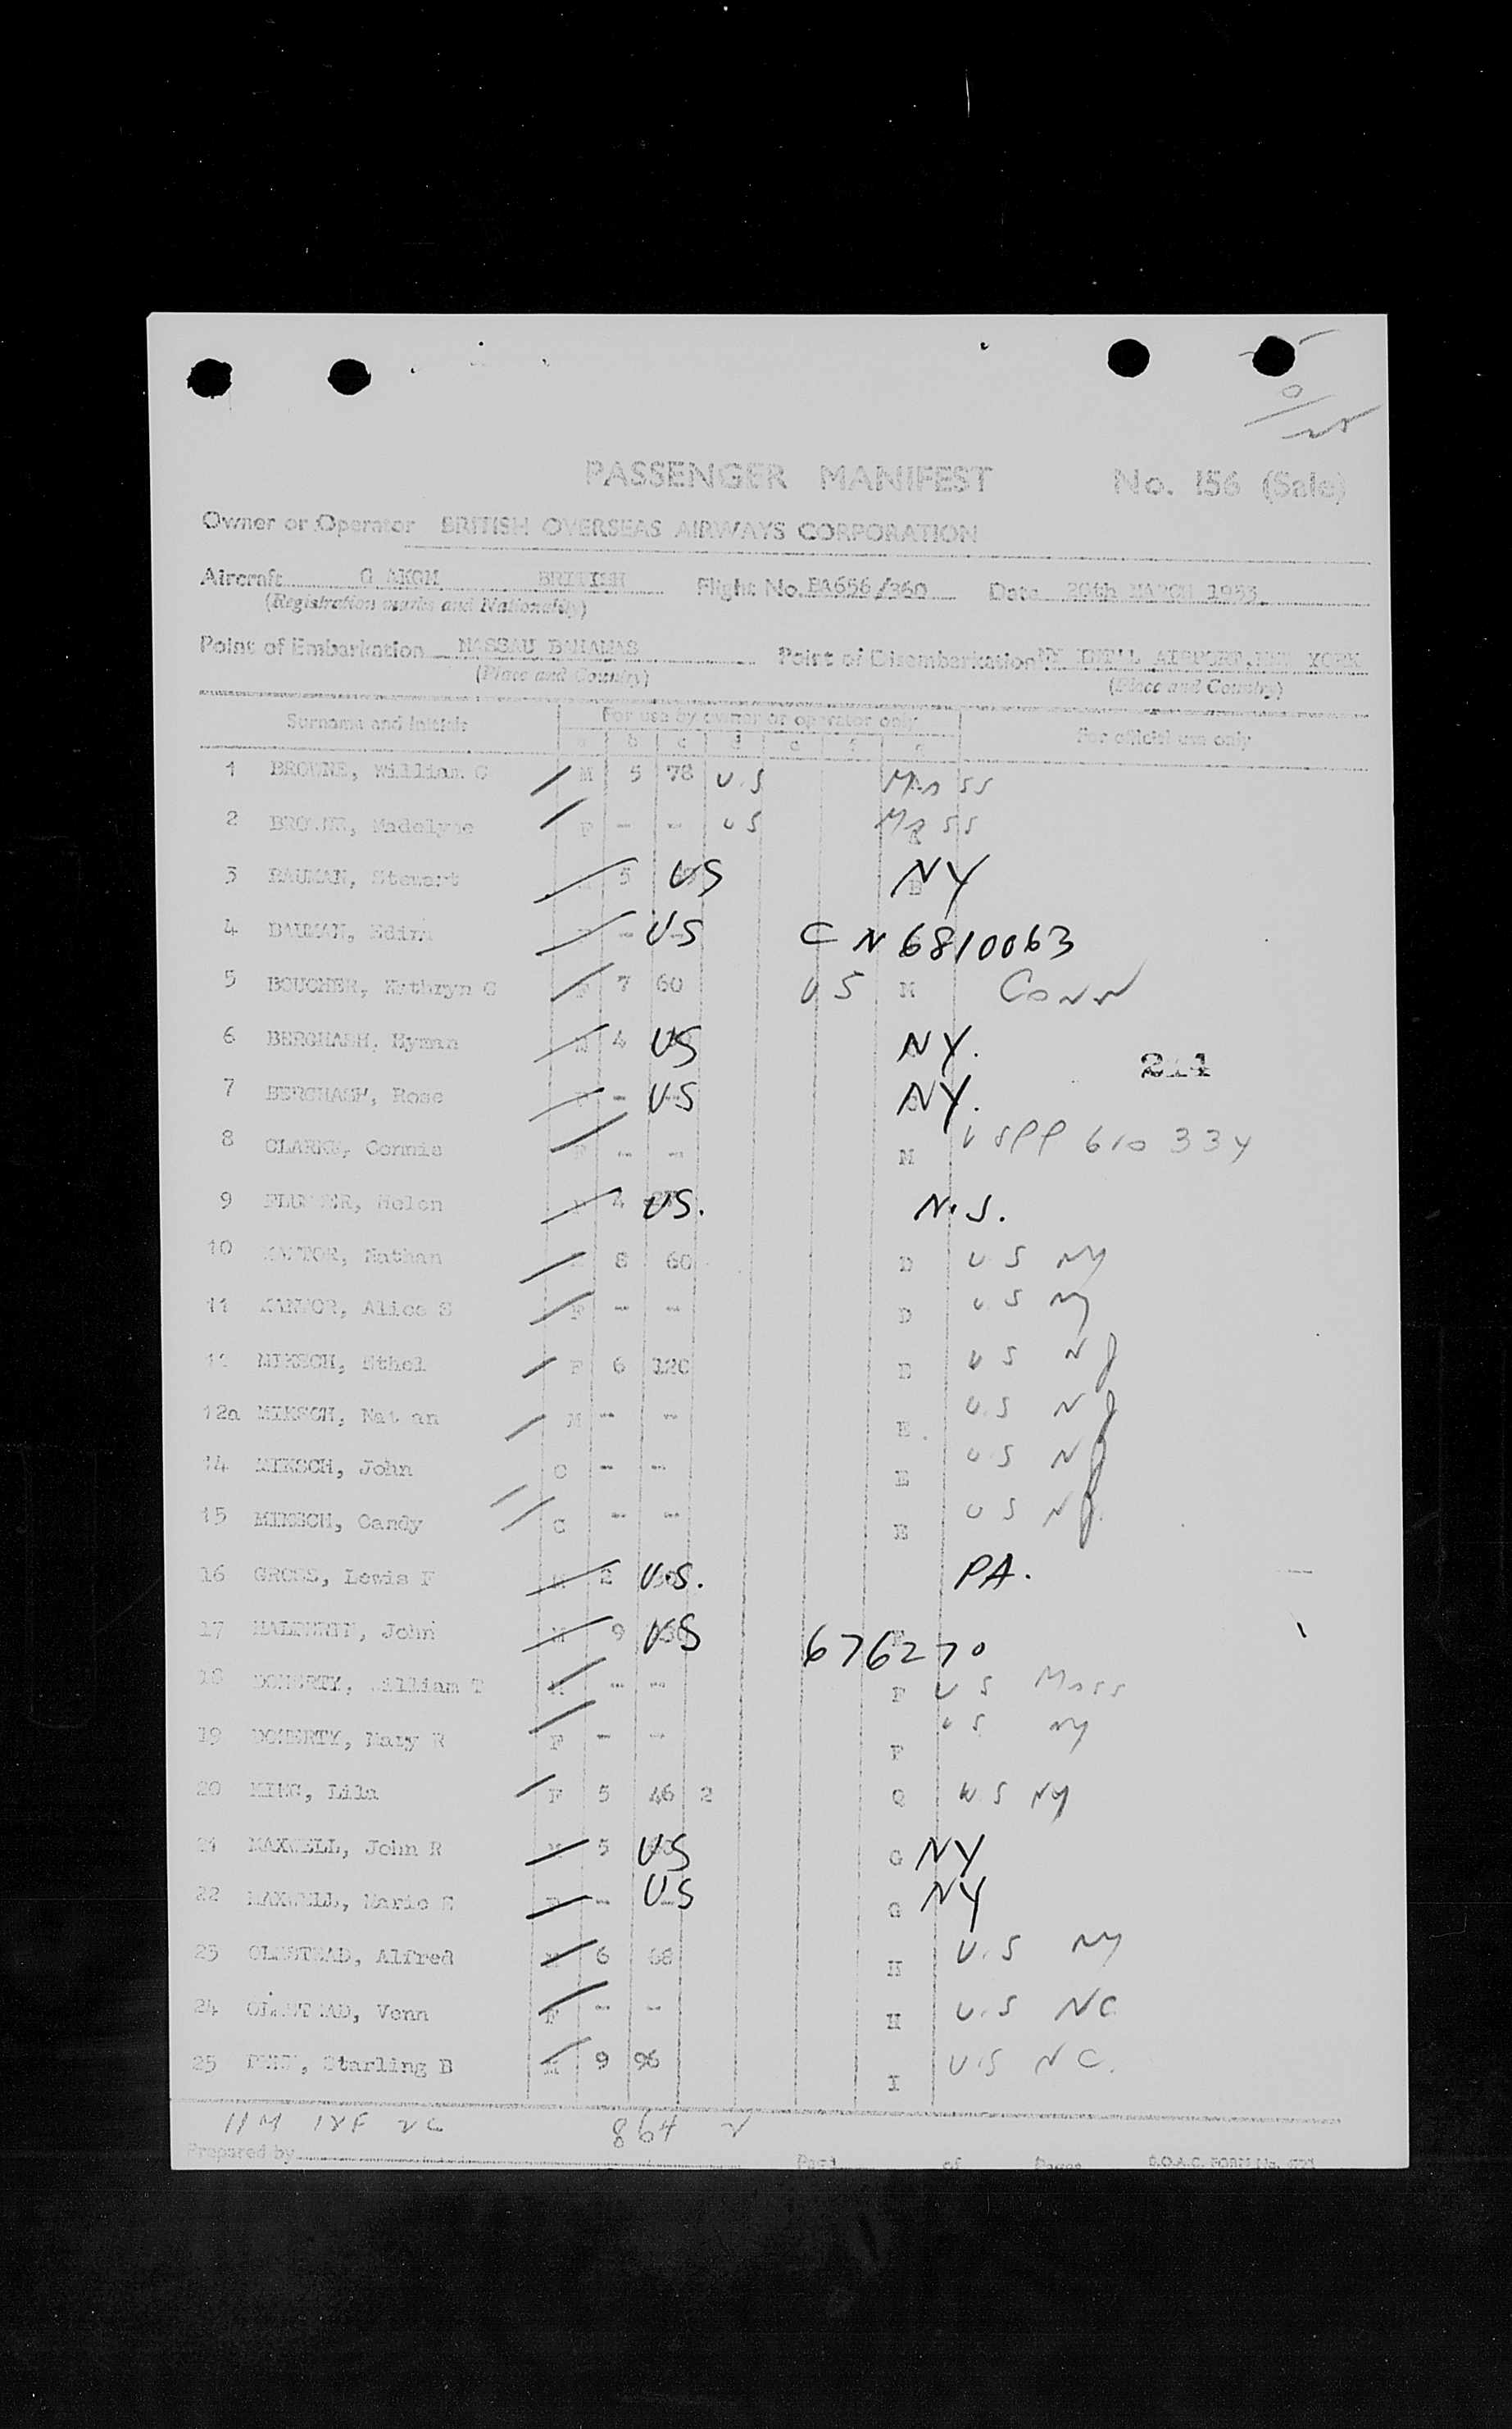 0/25
PASSENGER MANIFEST No. 156 (Sale)
Owner or Operator BRITISH OVERSEAS AIRWAYS CORPORATION
Aircraft G AKGM BRITISH Flight No. BA656/360 Date 20th MARCH 1953
(Registration marks and Nationality)
Point of Embarkation NASSAU BAHAMAS Point of Disembarkation NY INT'L AIRPORT, NEW YORK
(Place and Country) (Place and Country)
Surname and Initials For use by owner or operator only For official use only
a b c d e f g
1 BROWNE, William C M 5 78 U.S Mass
2 BROWNE, Madelyne F - - US Mass
3 BAUMAN, Stewart 5 US NY
4 BAUMAN, Edina - US CN 6810063
5 BOUCHER, Kathryn C F 7 60 US M Conn
6 BERGHASH, Hyman M 4 US NY.
214
7 BERGHASH, Rose - US NY.
8 CLARKE, Connie F - - M USPP 610334
9 Helen 4 US. N.J.
10 KANTOR, Nathan 8 60 D U.S NY
11 KANTOR, Alice S F - - D U.S NY
MIKSCH, Ethel F 6 120 E US NJ
12a MIKSCH, Nat an M - - E U.S NJ
14 MIKSCH, John C - - E U.S NJ
15 MIKSCH, Candy C - - E US NJ.
16 GROSS, Lewis F M 2 U.S. PA.
17 John M 9 US 676270
18 DOHERTY, William T M - - F US Mass
19 DOHERTY, Mary R F - - F US NY
20 MING, Lila F 5 46 2 G U.S NY
21 MAXWELL, John R M 5 US G NY
22 MAXWELL, Marie E - US G NY
23 OLMSTEAD, Alfred M 6 68 H U.S NY
24 OLMSTEAD, Venn F - - H U.S NC
25 Starling B M 9 96 I U.S NC.
11M 12F 2C 864 2
Prepared by Page of Pages B.O.A.C. FORM No.